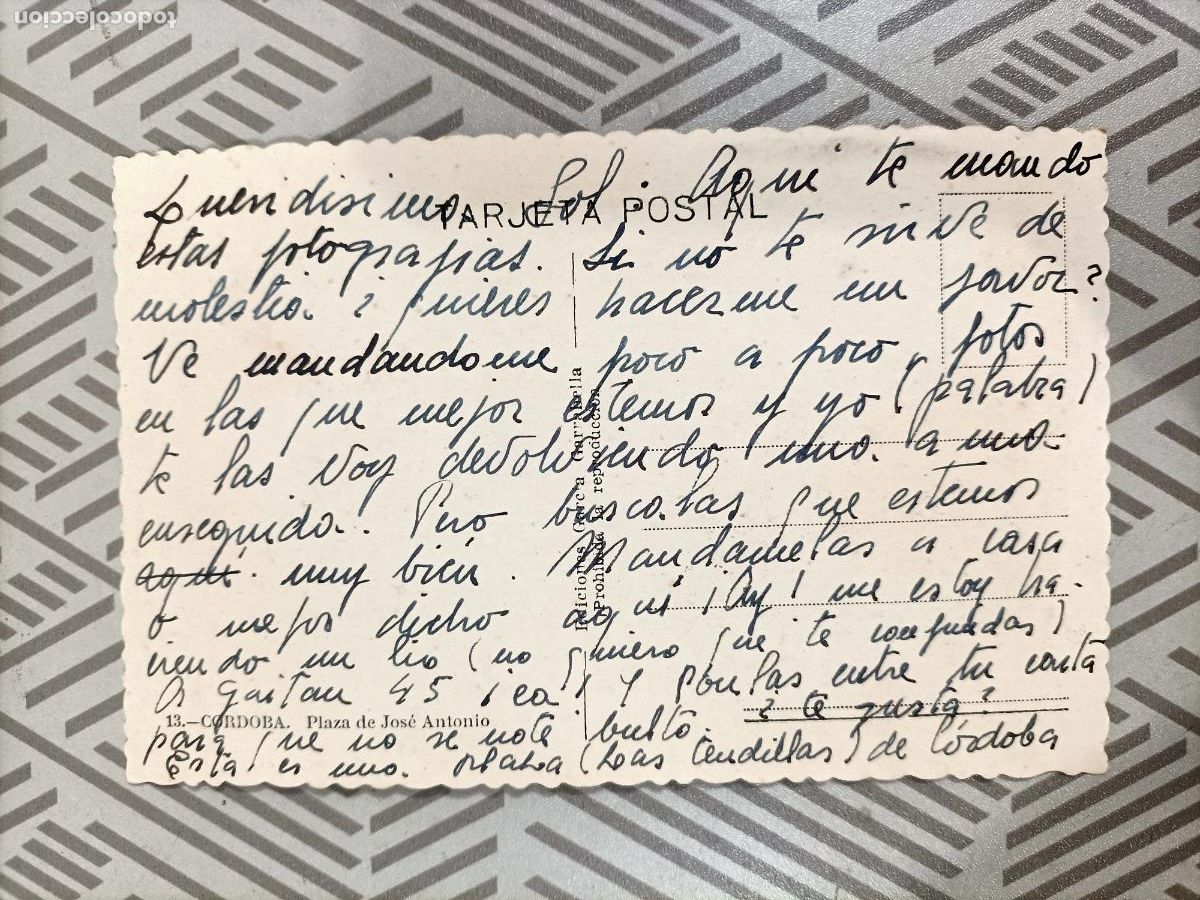 todocoleccion
Queridisima Sol. Aqui te mando
TARJETA POSTAL
estas fotografias. Si no te sirve de
molestia ¿quieres hacerme un favor?
Ve mandandome poco a poco, fotos
en las que mejor estemos y yo (palabra)
te las voy devolviendo una a una
enseguida. Pero buscalas que estemos
aqui muy bien. Mandamelas a casa
o mejor dicho aqui ¡Ay! me estoy ha-
ciendo un lio (no quiero que te confundas)
A Gaitan 45 ¡ea! y ponlas entre tu carta
¿te gusta?
13.—CORDOBA. Plaza de José Antonio
para que no se note bulto.
Esta es una plaza (Las Tendillas) de Córdoba
Ediciones García Garrabella
Prohibida la reproducción